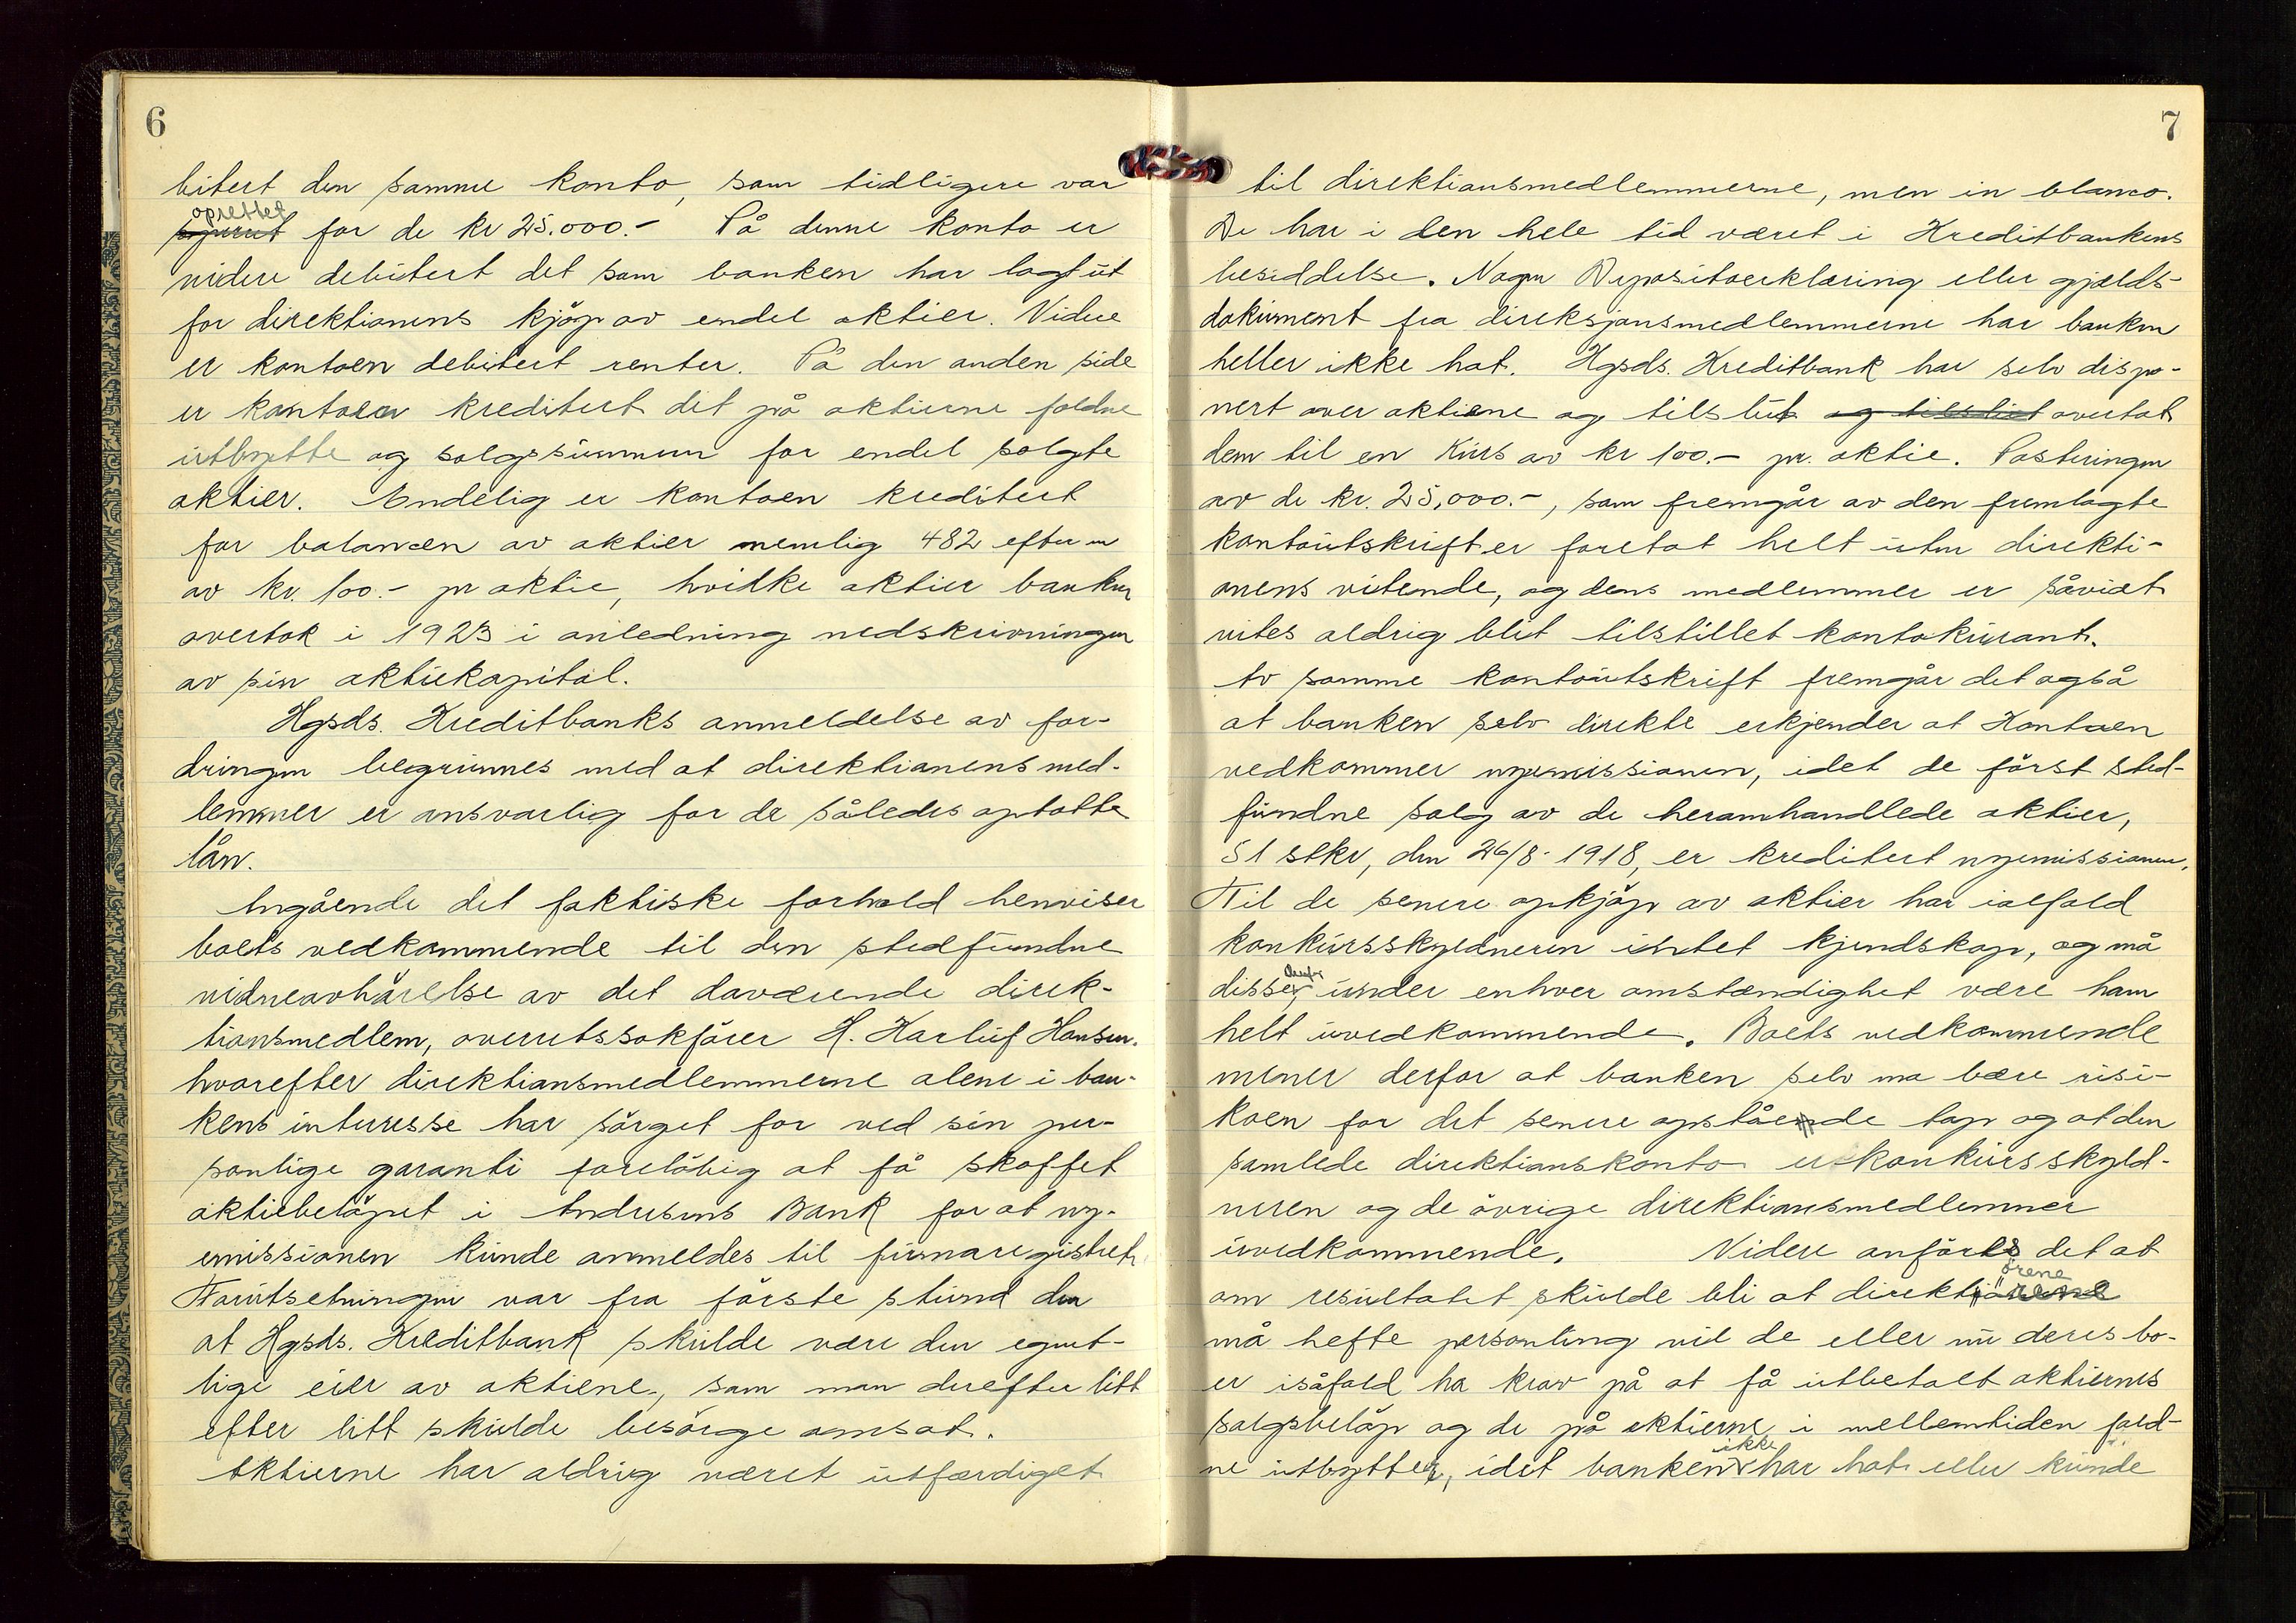 6
bitert den samme konto, som tidligere var
oprettet
for de kr 25.000.- På denne konto er
videre debitert det som banken har lagt ut
for direktionens kjöp av endel aktier. Videre
er kontoen debitert renter. På den anden side
er kontoen kreditert det på aktierne faldne
utbytte og salgssummen for endel solgte
aktier. Endelig er kontoen kreditert
for balancen av aktier nemlig 482 efter en
av kr. 100.- pr aktie, hvilke aktier banken
overtok i 1923 i anledning nedskrivningen
av sin aktiekapital.
Hgsds. Kreditbanks anmeldelse av for-
dringen begrunnes med at direktionens med-
lemmer er ansvarlig for de således optatte
lån.
Angående det faktiske forhold henviser
boets vedkommende til den stedfundne
vidneavhörelse av det daværende direk-
tionsmedlem, overretssakförer H. Harluf Hansen.
hvorefter direktionsmedlemmerne alene i ban-
kens interesse har sörget for ved sin per-
sonlige garanti forelöbig at få skaffet
aktiebelöpet i Andresens Bank for at ny-
emissionen kunde anmeldes til firmaregistret.
Forutsetningen var fra förste stund den
at Hgsds. Kreditbank skulde være den egent-
lige eier av aktiene, som man derefter litt
efter litt skulde besörge omsat.
Aktierne har aldrig været utfærdiget
7
til direktionsmedlemmerne, men in blanco.
De har i den hele tid været i Kreditbankens
besiddelse. Nogen Depositoerklæring eller gjælds-
dokument fra direksjonsmedlemmerne har banken
heller ikke hat. Hgsds. Kreditbank har selv dispo-
nert over aktiene og tilslut og tilslut overtat
dem til en kurs av kr 100.- pr. aktie. Posteringen
av de kr. 25,000.-, som fremgår av den fremlagte
kontoutskrift er foretat helt uten direkti-
onens vitende, og dens medlemmer er såvidt
vites aldrig blit tilstillet kontokurant.
Av samme kontoutskrift fremgår det også
at banken selv direkte erkjender at Kontoen
vedkommer nyemissionen, idet de först sted-
fundne salg av de heromhandlede aktier,
51 stkr, den 26/8-1918, er kreditert nyemissionen.
Til de senere opkjöp av aktier har ialfald
konkursskyldneren intet kjendskap, og må
derfor
disse, under enhver omstændighet være ham
helt uvedkommende. Boets vedkommende
mener derfor at banken selv ma bære risi-
koen for det senere opstående tap og at den
samlede direktionskonto er konkursskyld-
neren og de övrige direktionsmedlemmer
uvedkommende. Videre anföres det at
örene
om resultatet skulde bli at direkt
må hefte personling vil de eller nu deres bo-
er isåfald ha krav på at få utbetalt aktiernes
salgsbelöp og de på aktierne i mellemtiden fald-
ikke
ne utbytter, idet banken har hat eller kunde